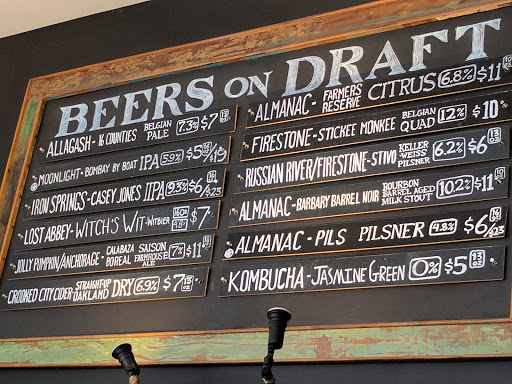 BEERS ON DRAFT
ALLAGASH - 16 COUNTIES BELGIAN PALE 7.3% $7 13oz
MOONLIGHT - BOMBAY BY BOAT IPA 5.9% $5/$19
IRON SPRINGS - CASEY JONES IIPA 9.3% $6/$23
LOST ABBEY - WITCH'S WIT - WITBIER 16oz 4.8% $7
JOLLY PUMPKIN/ANCHORAGE - CALABAZA BOREAL SAISON FARMHOUSE ALE 7% $11
CROOKED CITY CIDER - STRAIGHT-UP OAKLAND DRY 6.9% $7 13oz
ALMANAC - FARMERS RESERVE CITRUS 6.8% $11 10oz
FIRESTONE - STICKEE MONKEE BELGIAN QUAD 12% $10
RUSSIAN RIVER/FIRESTONE - STIVO KELLER-WEISS PILSNER 6.2% $6 13oz
ALMANAC - BARBARY BARREL NOIR BOURBON BARREL AGED MILK STOUT 10.2% $11 10oz
ALMANAC - PILS PILSNER 4.8% $6/$23
KOMBUCHA - JASMINE GREEN 0% $5 13oz